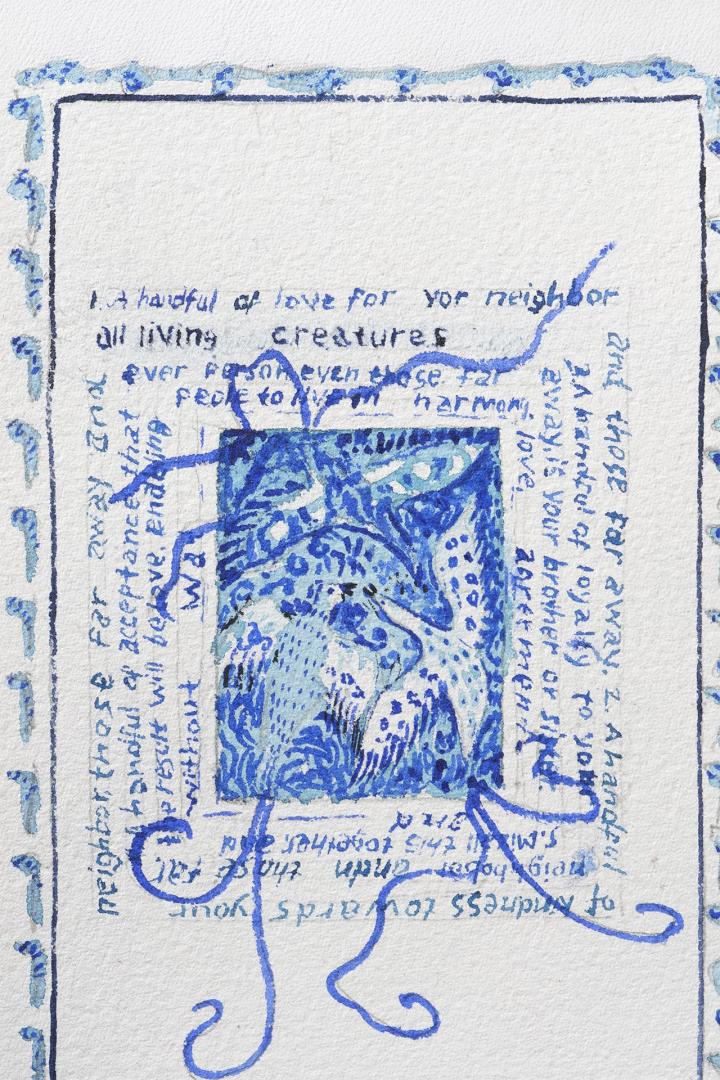 1. A handful of love for yor neighbor
all living creatures
ever person even those far
peole to live in harmony,
and those far away. 2. A handful
2A handful of loyalty to your
away, is your brother or sister
love, agreement,
of kindness towards your
neighboer andn those far
5. mix all this together and
and
neighbor those far away and
A handful of acceptance that
the result will be love. Enabling
without wa